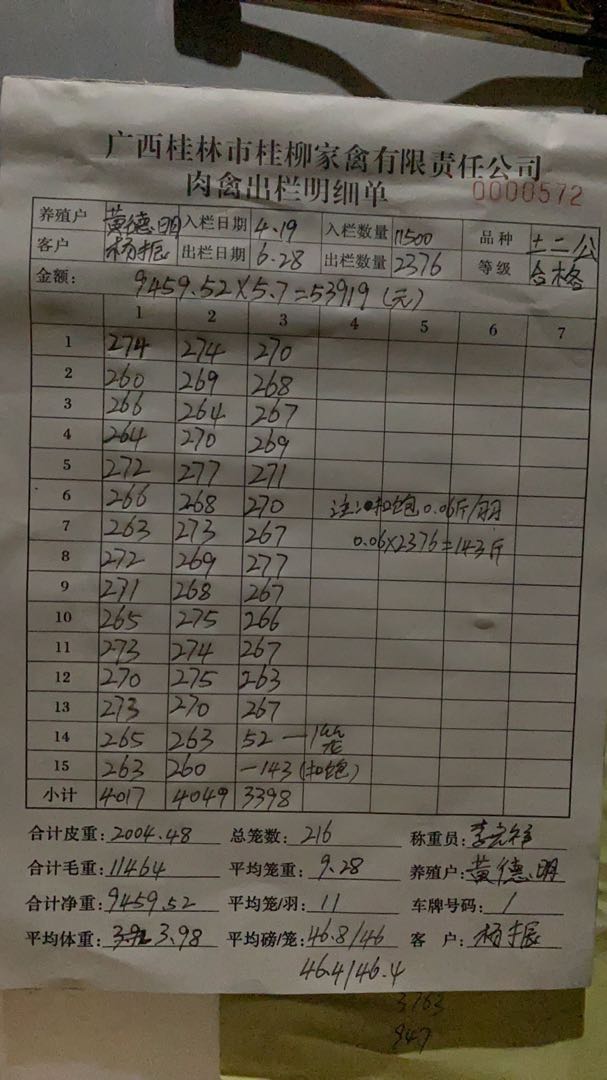 广西桂林市桂柳家禽有限责任公司
肉禽出栏明细单
0000572
养殖户 黄德明 入栏日期 4.19 入栏数量 11500 品种 土二公
客户 杨振 出栏日期 6.28 出栏数量 2376 等级 合格
金额: 9459.52×5.7=53919(元)
1 2 3 4 5 6 7
1 274 274 270
2 260 269 268
3 266 264 267
4 264 270 269
5 272 277 271
6 266 268 270 注:扣饱0.06斤/羽
7 263 273 267 0.06×2376=143斤
8 272 269 277
9 271 268 267
10 265 275 266
11 273 274 267
12 270 275 263
13 273 270 267
14 265 263 52 —1笼
15 263 260 -143(扣饱)
小计 4017 4049 3398
合计皮重: 2004.48 总笼数: 216 称重员:
合计毛重: 11464 平均笼重: 9.28 养殖户: 黄德明
合计净重: 9459.52 平均笼/羽: 11 车牌号码: 1
平均体重: 3.98 平均磅/笼: 46.8/46 客户: 杨振
46.4/46.4
3763
847